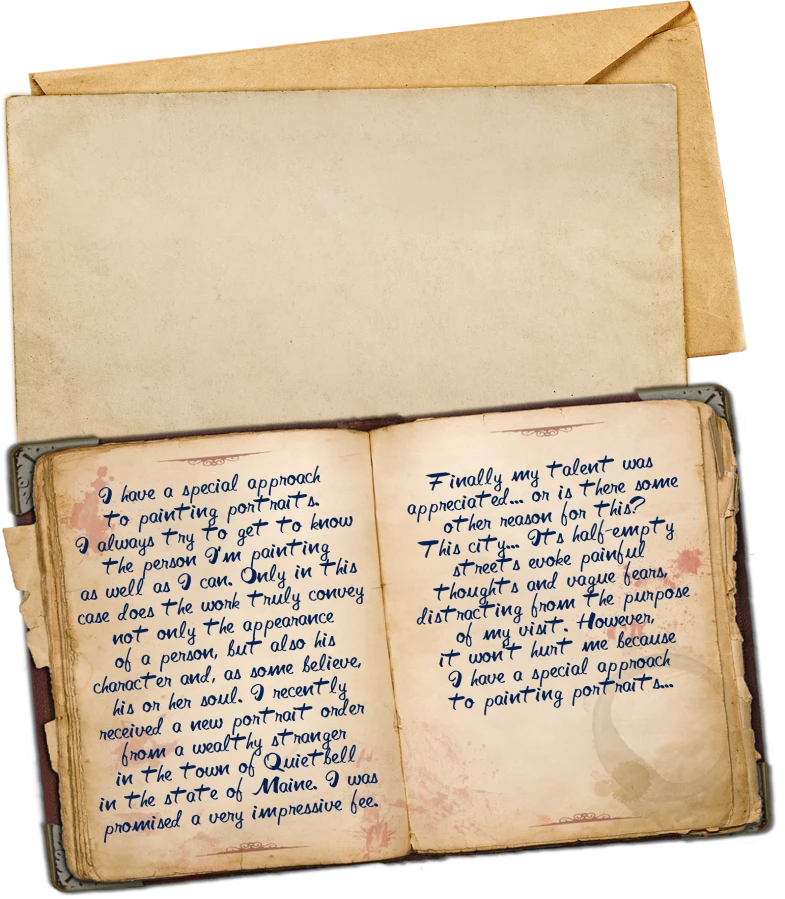 I have a special approach
to painting portraits.
I always try to get to know
the person I'm painting
as well as I can. Only in this
case does the work truly convey
not only the appearance
of a person, but also his
character and, as some believe,
his or her soul. I recently
received a new portrait order
from a wealthy stranger
in the town of Quietbell
in the state of Maine. I was
promised a very impressive fee.
Finally my talent was
appreciated... or is there some
other reason for this?
This city... It's half-empty
streets evoke painful
thoughts and vague fears,
distracting from the purpose
of my visit. However,
it won't hurt me because
I have a special approach
to painting portraits...